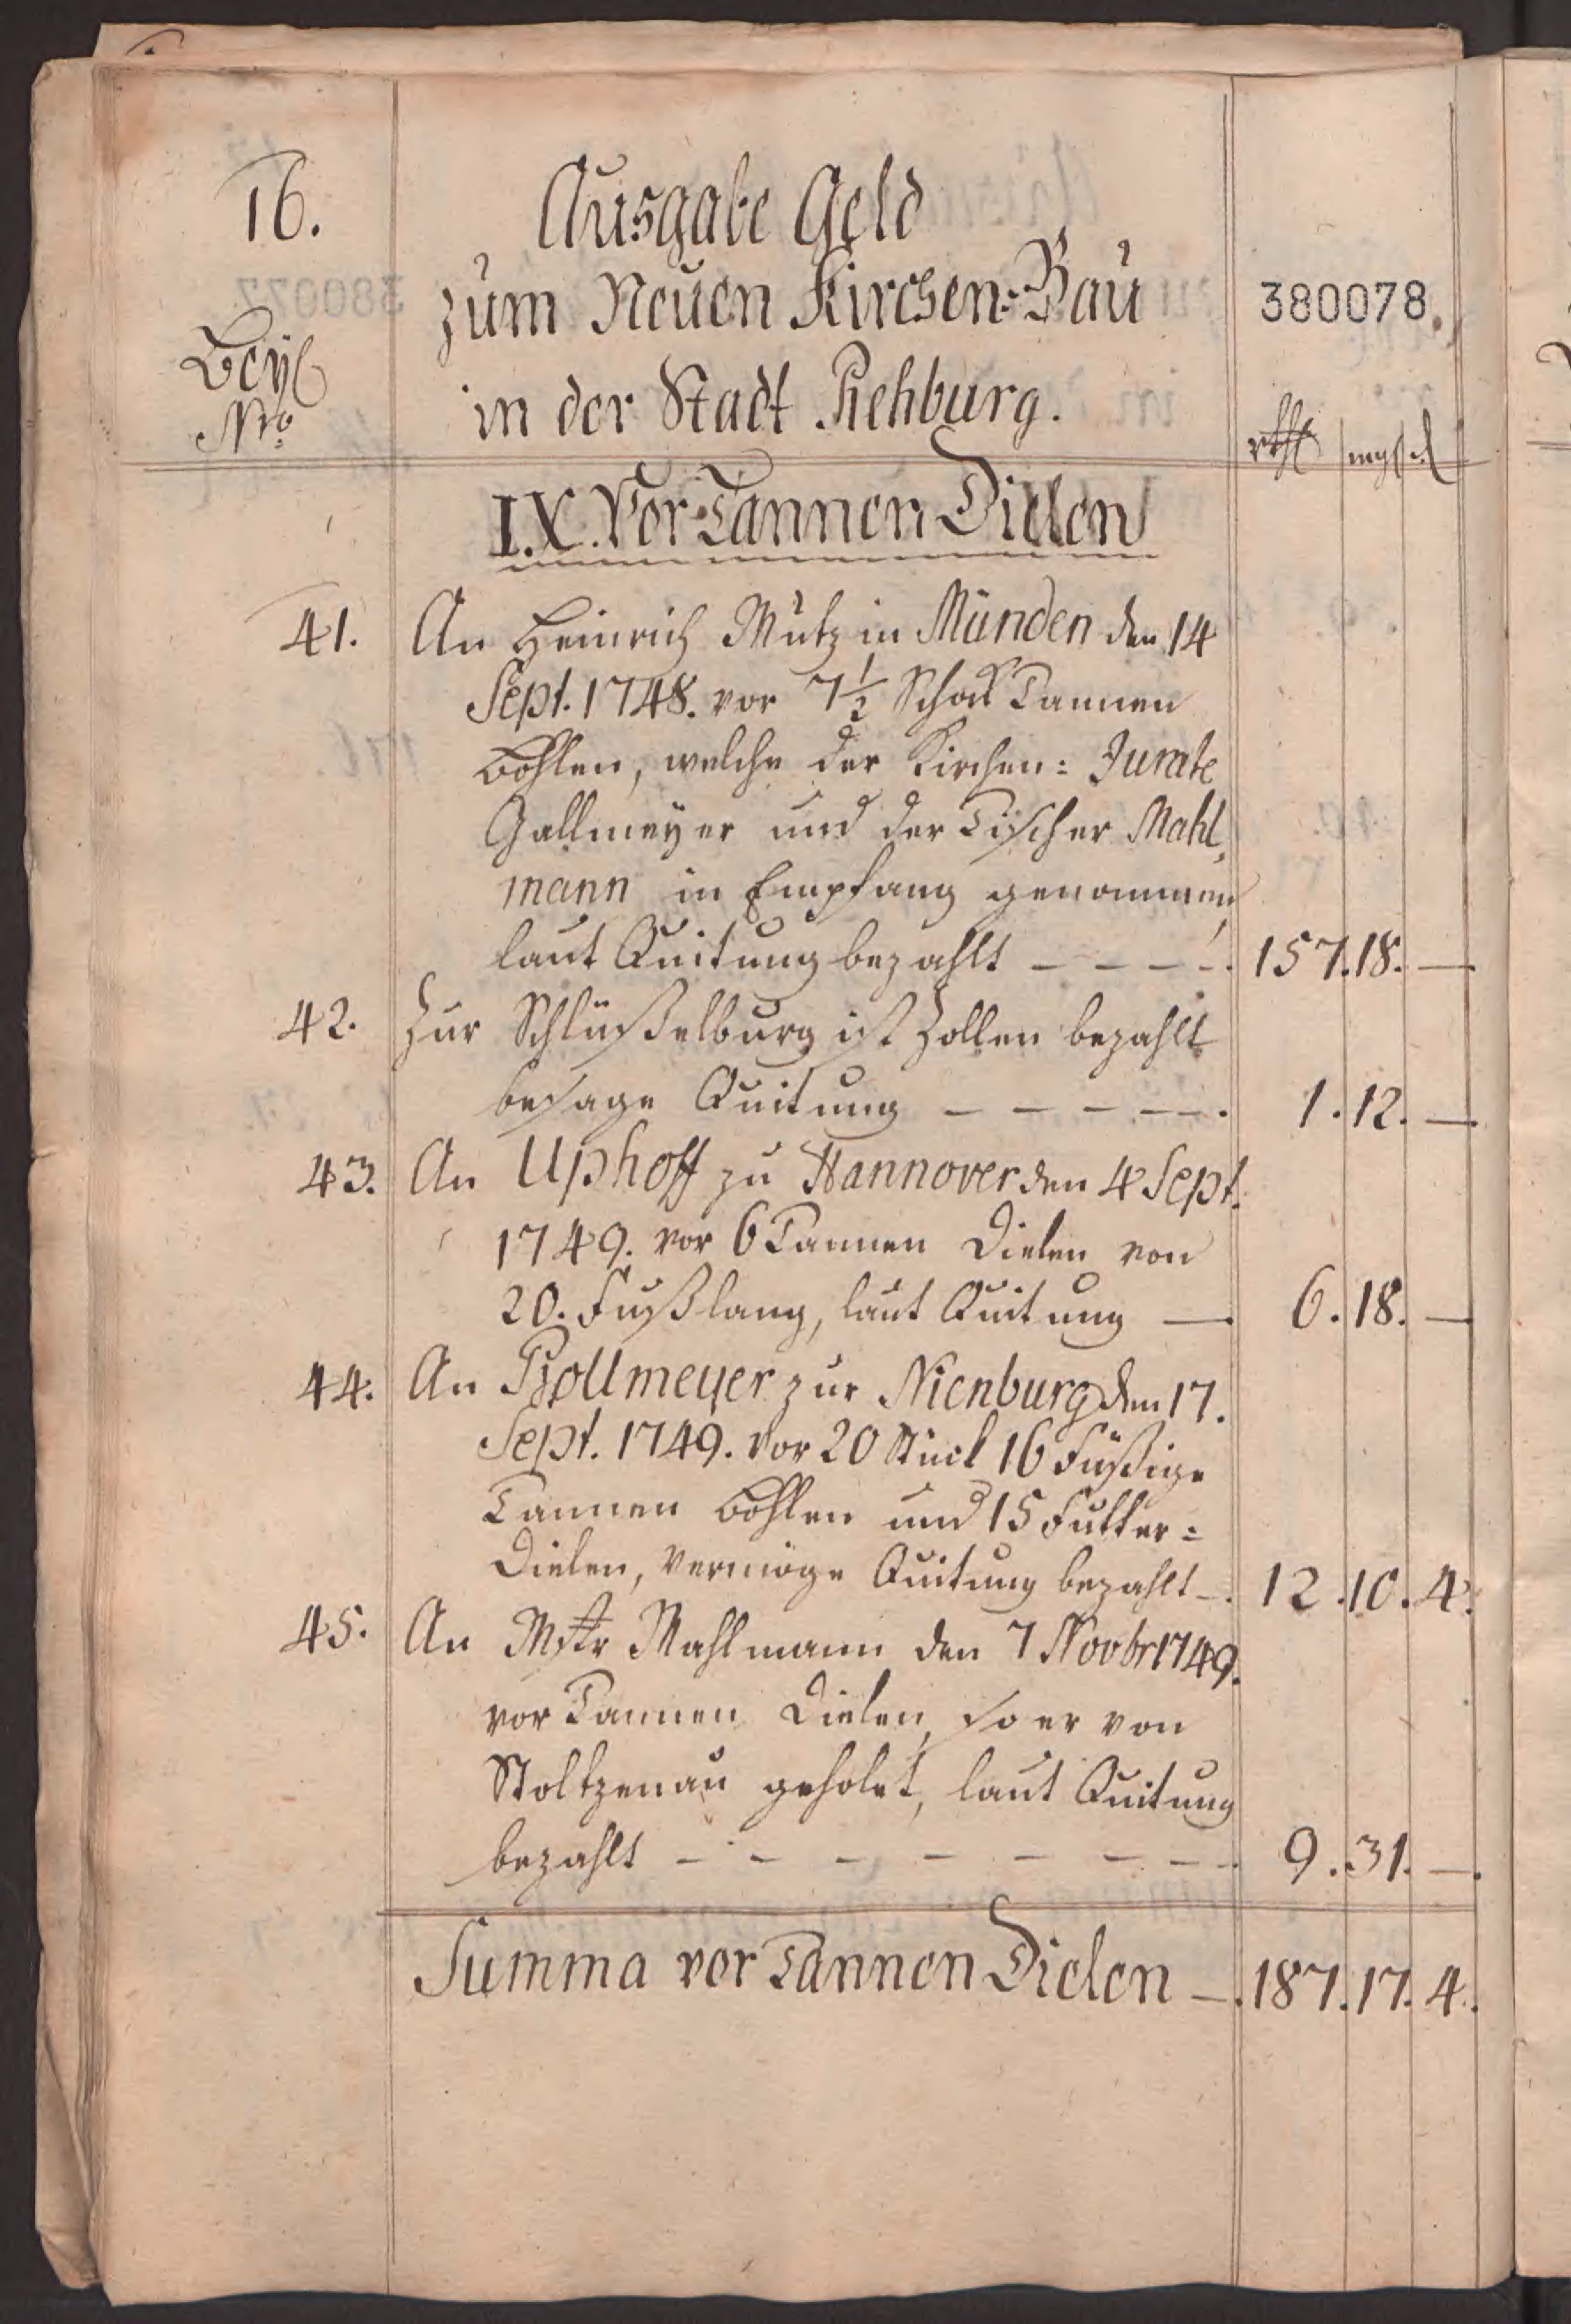 16.
Ausgabe Geld
zum Neuen Kirchen-Bau
380078
Beyl
Nro
in der Stadt Rehburg.
rthl mgl d
IX. Vor Tannen Dielen
41. An Heinrich Mütz in Münden den 14
Sept. 1748. vor 7 1/2 Schock Tannen
bohlen, welche der Kirchen= Jurate
Gallmeyer und der Tischer Mahl,
mann in Empfang genommen,
laut Quitung bezahlt - - - - 157. 18. —
42. Zur Schlüßelburg ist Zollen bezahlt
besage Quitung - - - - - 1. 12. —
43. An Uphoff zu Hannover den 4 Sept.
1749. vor 6 Tannen Dielen von
20. Fuß lang, laut Quitung — 6. 18. —
44. An Bollmeyer zur Nienburg den 17.
Sept. 1749. vor 20 Stück 16 Füßige
Tannen bohlen und 15 Futter=
Dielen, vermöge Quitung bezahlt - 12. 10. 4.
45. An Mstr Mahlmann den 7 Novbr 1749.
vor Tannen Dielen, so er von
Stoltzenau geholet, laut Quitung
bezahlt - - - - - - - 9. 31. —
Summa vor Tannen Dielen — 187. 17. 4.